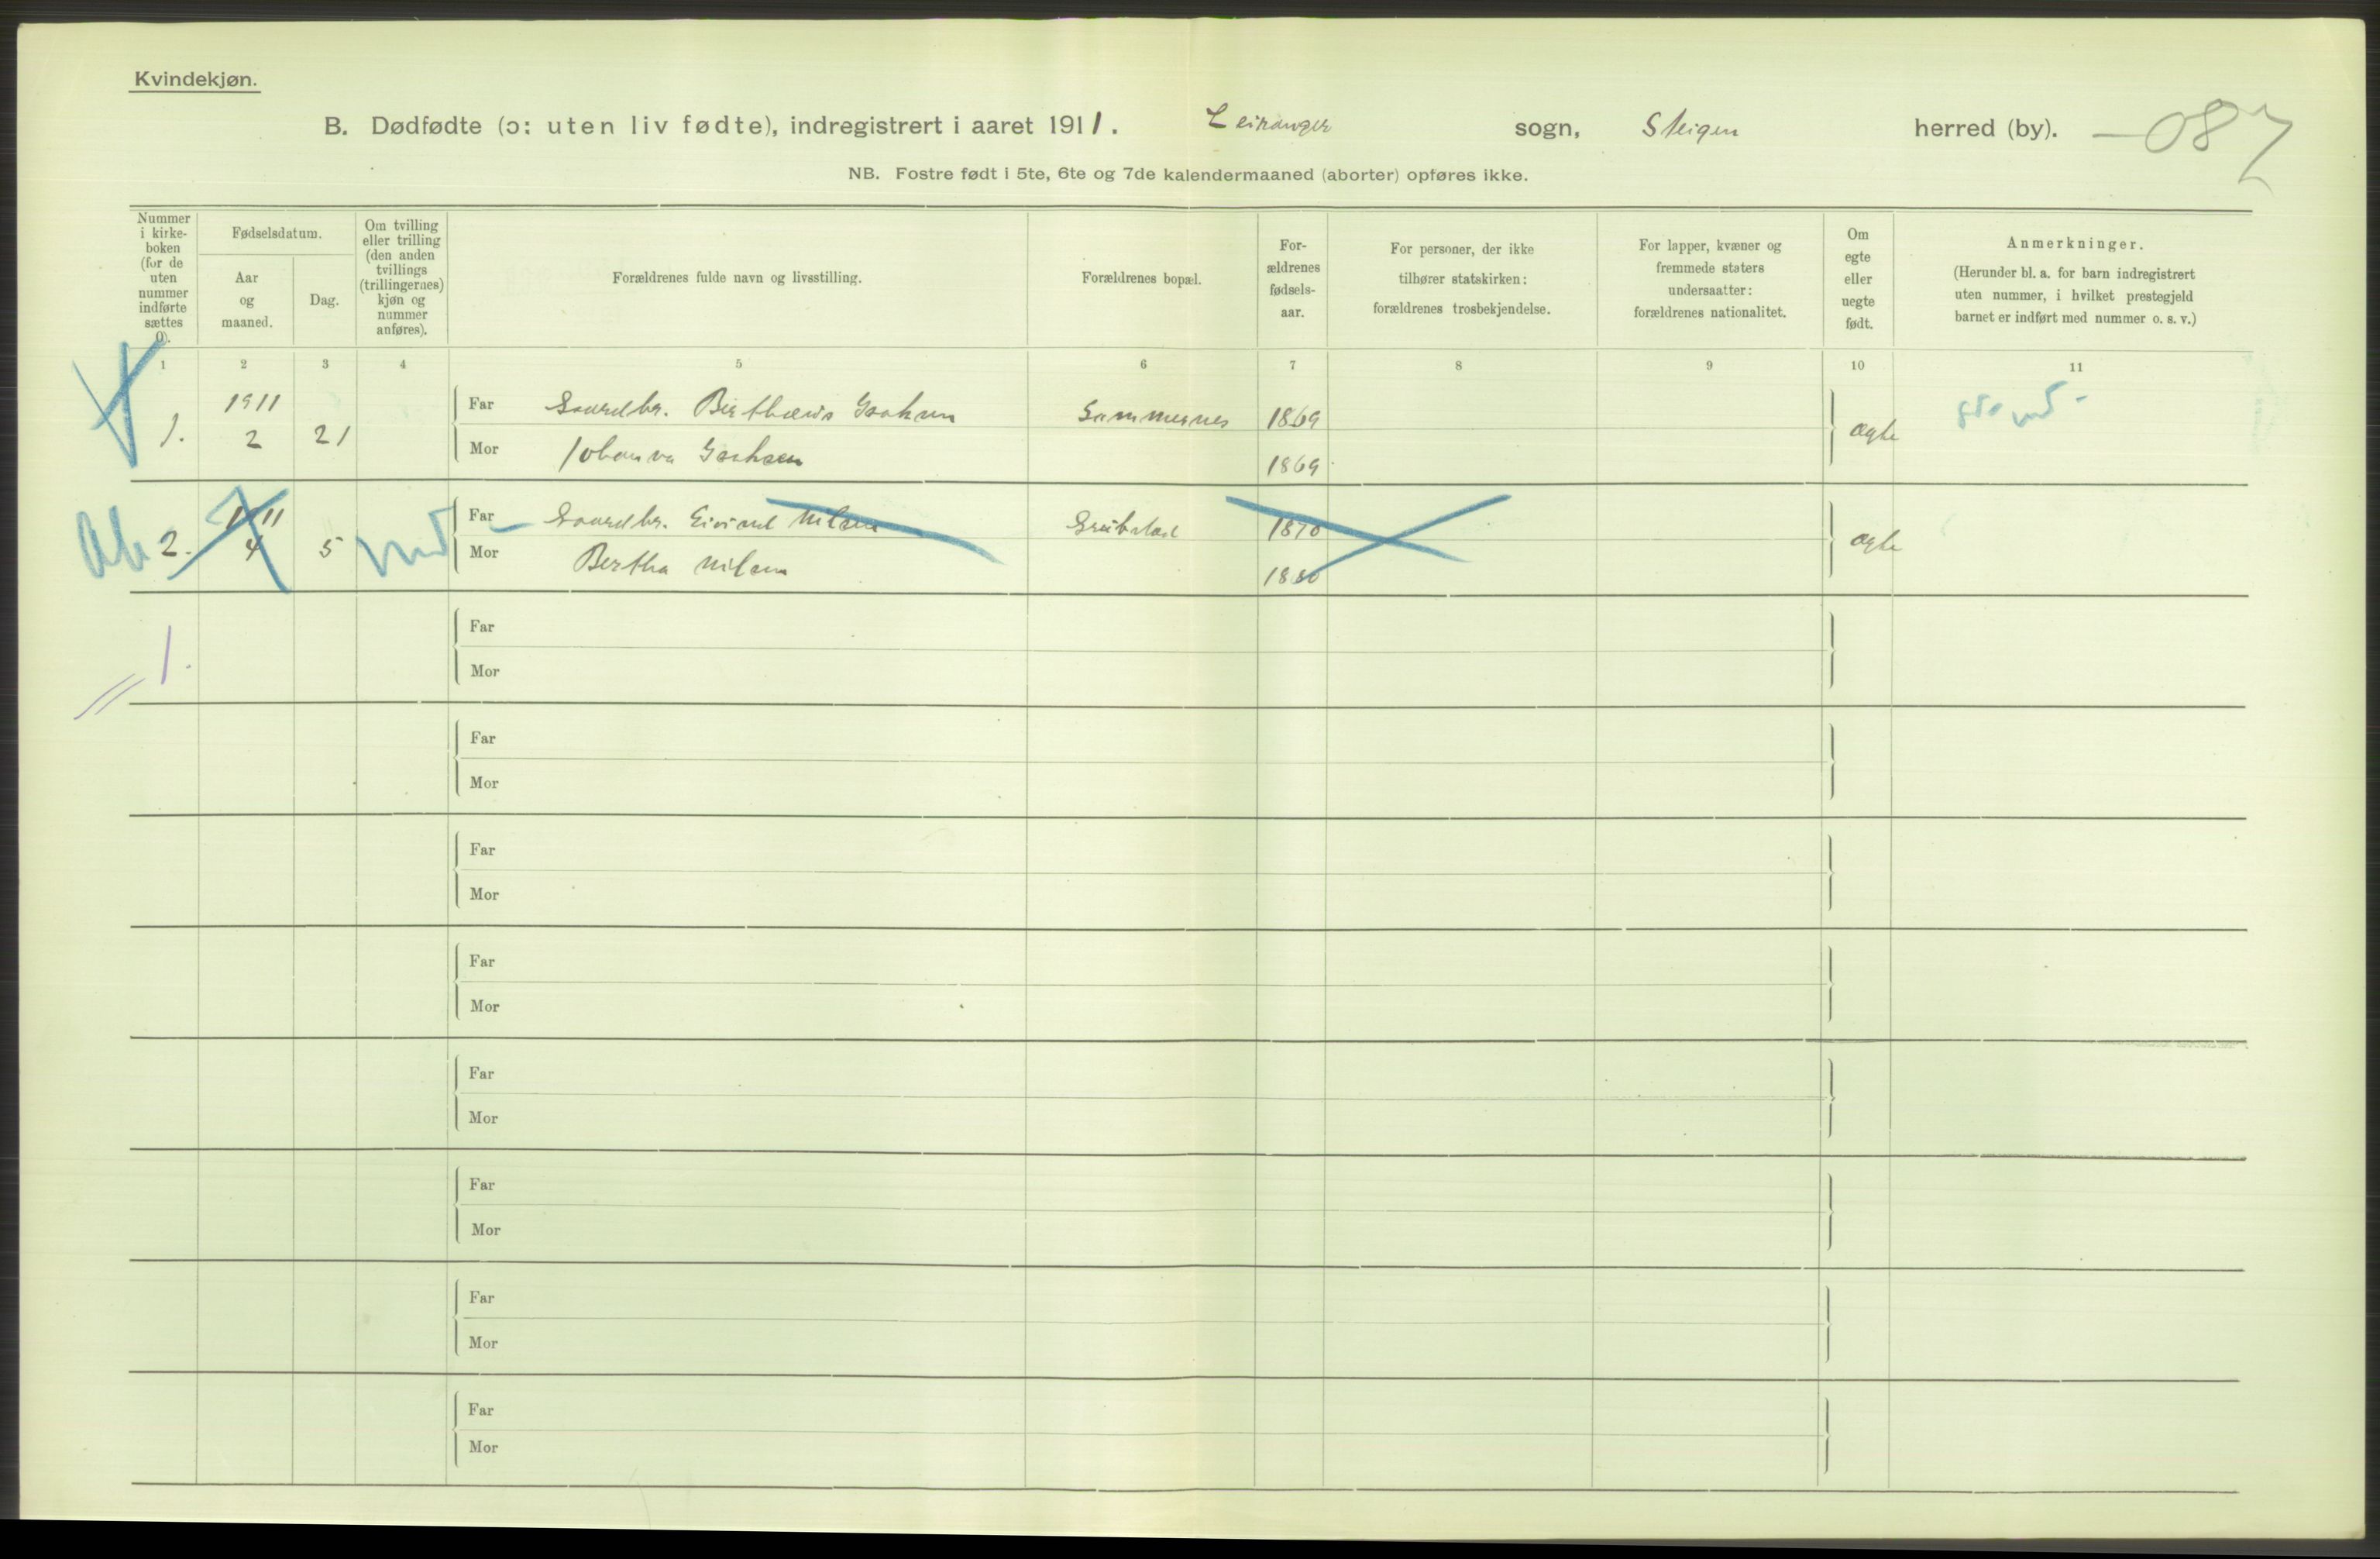 Kvindekjøn.
B. Dødfødte (ɔ: uten liv fødte), indregistrert i aaret 1911. Leiranger sogn, Steigen herred (by). — 087
NB. Fostre født i 5te, 6te og 7de kalendermaaned (aborter) opføres ikke.
Nummer i kirke-
boken
(for de
uten
nummer
indførte
sættes
0).
Fødselsdatum.
Aar
og
maaned.
Dag.
Om tvilling
eller trilling
(den anden
tvillings
(trillingernes)
kjøn og
nummer
anføres).
Forældrenes fulde navn og livsstilling.
Forældrenes bopæl.
For-
ældrenes
fødsels-
aar.
For personer, der ikke
tilhører statskirken:
forældrenes trosbekjendelse.
For lapper, kvæner og
fremmede staters
undersaatter:
forældrenes nationalitet.
Om
egte
eller
uegte
født.
Anmerkninger.
(Herunder bl. a. for barn indregistrert
uten nummer, i hvilket prestegjeld
barnet er indført med nummer o. s. v.)
1 2 3 4 5 6 7 8 9 10 11
1. 1911 2 21 Far Gaardbr. 1869 ægte
Mor Johanna 1869
2. 1911 4 5 Far Gaardbr. Eivind Nilsen 1870 ægte
Mor Bertha Nilsen 1880
1. Far
Mor
Far
Mor
Far
Mor
Far
Mor
Far
Mor
Far
Mor
Far
Mor
Far
Mor